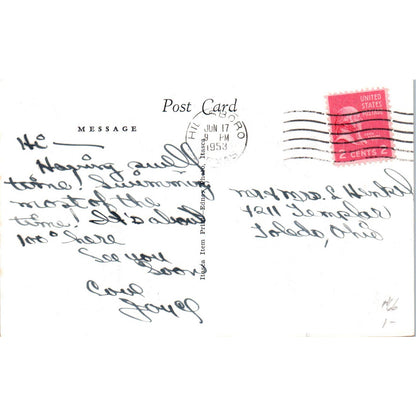 Post Card
MESSAGE
Hi —
Having swell
time. Swimming
most of the
time. It's about
100° here
See you
Soon
Love
Joyce
Itasca Item Print - Edinger Photo, Itasca
JUN 17
PM
1953
UNITED
STATES
POSTAGE
2 CENTS 2
Mr & Mrs. L Henkel
4211 Templar
Toledo, Ohio
1-